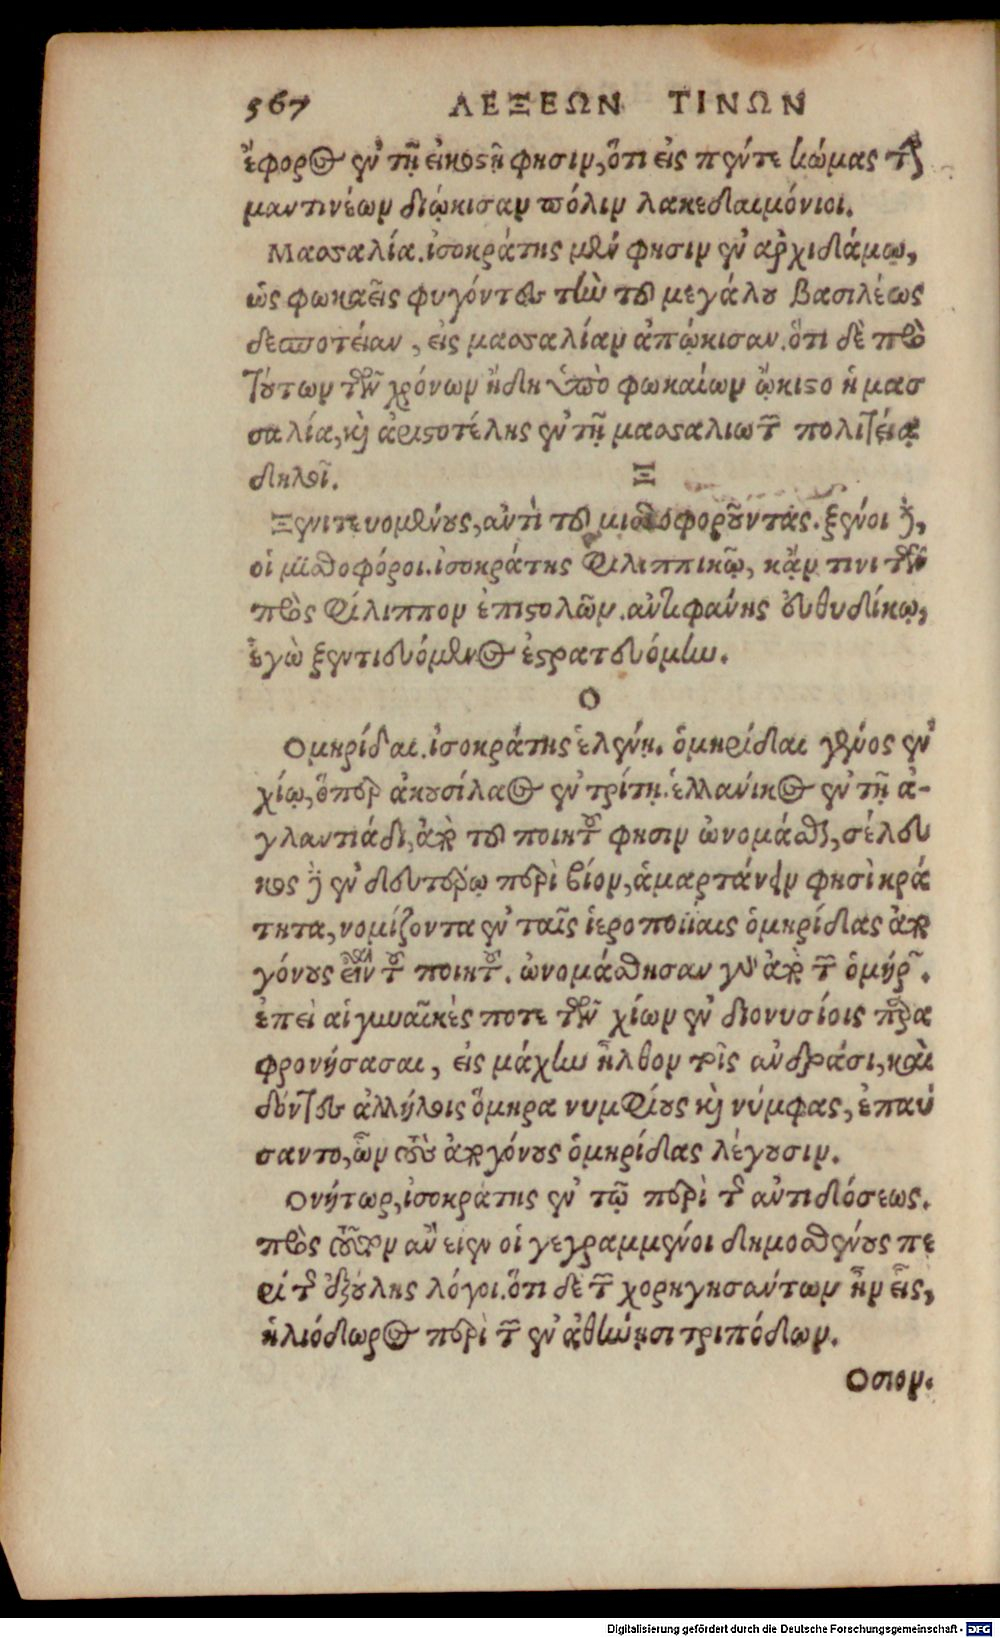 567 ΛΕΞΕΩΝ ΤΙΝΩΝ
ἔφορος ἐν τῇ εἰκοστῇ φησιν, ὅτι εἰς πέντε κώμας τὴν
μαντινέων διῴκισαν πόλιν λακεδαιμόνιοι.
Μασσαλία. ἰσοκράτης μέν φησιν ἐν ἀρχιδάμῳ,
ὡς φωκαεῖς φυγόντες τὴν τοῦ μεγάλου βασιλέως
δεσποτείαν, εἰς μασσαλίαν ἀπῴκισαν. ὅτι δὲ πρὸ
τούτων τῶν χρόνων ἤδη ὑπὸ φωκαίων ᾤκιστο ἡ μασ
σαλία, καὶ ἀριστοτέλης ἐν τῇ μασσαλιωτῶν πολιτείᾳ
δηλοῖ.
Ξ
Ξενιτευομένους, ἀντὶ τοῦ μισθοφοροῦντας. ξένοι γὰρ,
οἱ μισθοφόροι. ἰσοκράτης φιλιππικῷ, κἄν τινι τῶν
πρὸς φίλιππον ἐπιστολῶν. ἀντιφάνης εὐθυδίκῳ,
ἐγὼ ξεντιευόμενος ἐστρατευόμην.
Ο
Ομηρίδαι. ἰσοκράτης ἑλένῃ. ὁμηρίδαι γένος ἐν
χίῳ, ὅπερ ἀκουσίλαος ἐν τρίτῃ. ἑλλάνικος ἐν τῇ ἀ-
γλαντιάδι, ἀπὸ τοῦ ποιητοῦ φησιν ὠνομάσθαι, σέλευ
κος δὲ ἐν δευτέρῳ περὶ βίον, ἁμαρτάνειν φησὶ κρά
τητα, νομίζοντα ἐν ταῖς ἱεροποιίαις ὁμηρίδας ἀπο
γόνους εἶναι τοῦ ποιητοῦ. ὠνομάσθησαν γὰρ ἀπὸ τῶν ὁμήρων.
ἐπεὶ αἱ γυναῖκές ποτε τῶν χίων ἐν διονυσίοις παρα
φρονήσασαι, εἰς μάχην ἦλθον τοῖς ἀνδράσι, καὶ
δόντες ἀλλήλοις ὅμηρα νυμφίους καὶ νύμφας, ἐπαύ
σαντο, ὧν τοὺς ἀπογόνους ὁμηρίδας λέγουσιν.
Ονήτωρ, ἰσοκράτης ἐν τῷ περὶ τῆς ἀντιδόσεως.
πρὸς τοῦτον ἂν εἶεν οἱ γεγραμμένοι δημοσθένους πε
ρὶ τῆς ἐξούλης λόγοι. ὅτι δὲ τῶν χορηγησάντων ἦν εἷς,
ἡλιόδωρος περὶ τῶν ἐν ἀθήνῃσι τριπόδων.
Οσιον.
Digitalisierung gefördert durch die Deutsche Forschungsgemeinschaft - DFG